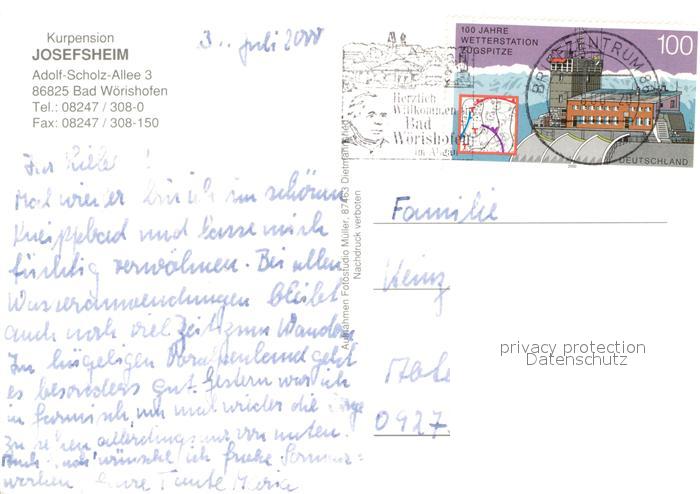 Kurpension
JOSEFSHEIM
Adolf-Scholz-Allee 3
86825 Bad Wörishofen
Tel.: 08247 / 308-0
Fax: 08247 / 308-150
3. Juli 2000
Herzlich
Willkommen
Bad
Wörishofen
im Allgäu
100 JAHRE
WETTERSTATION
ZUGSPITZE
100
DEUTSCHLAND
BRIEFZENTRUM 86
Mal wieder bin ich im schönen
Kneippbad und lasse mich
tüchtig verwöhnen. Bei allen
Wasseranwendungen bleibt
auch noch viel Zeit zum Wandern
Im hügeligen Voralpenland geht
es besonders gut. Gestern war ich
in Garmisch, um mal wieder die Berge
zu sehen allerdings nur von unten.
Euch wünsche ich frohe Sommer-
wochen Eure Tante Maria
Aufnahmen Fotostudio Müller, 87463 Dietmannsried
Nachdruck verboten
Familie
Heinz
0927
privacy protection
Datenschutz